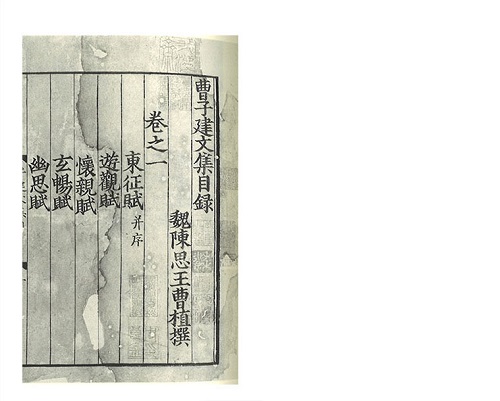 曹子建文集目録
魏陳思王曹植撰
卷之一
東征賦并序
遊觀賦
懷親賦
玄暢賦
幽思賦